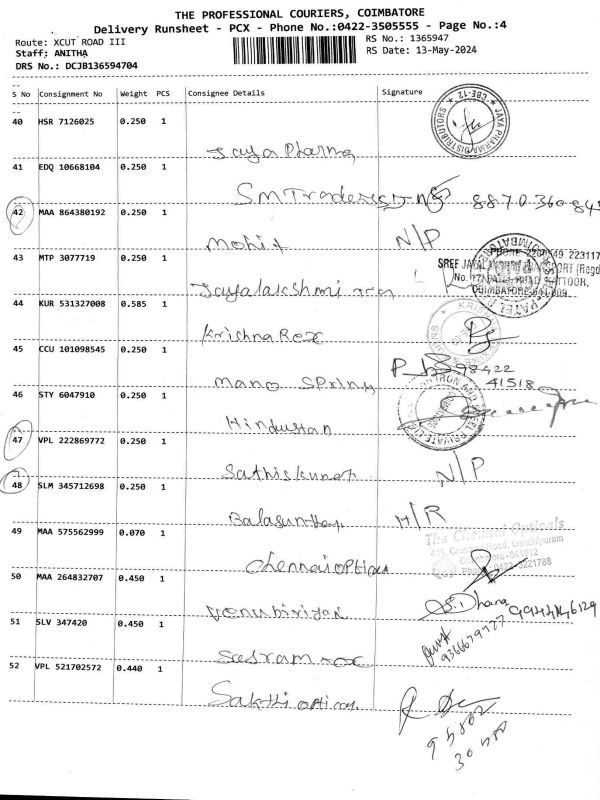 THE PROFESSIONAL COURIERS, COIMBATORE
Delivery Runsheet - PCX - Phone No.:0422-3505555 - Page No.:4
Route: XCUT ROAD III
RS No.: 1365947
Staff: ANITHA
RS Date: 13-May-2024
DRS No.: DCJB136594704
S No Consignment No Weight PCS Consignee Details Signature
40 HSR 7126025 0.250 1
Jaya Pharma
JAYA PHARMA DISTRIBUTORS CBE-12
41 EDQ 10668104 0.250 1
SM Traders
42 MAA 864380192 0.250 1
Mohit N/P
43 MTP 3077719 0.250 1
Jayalakshmi
44 KUR 531327008 0.585 1
Krishna Rex
45 CCU 101098545 0.250 1
Mano Spring
98422
41518
46 STY 6047910 0.250 1
Hindustan
47 VPL 222869772 0.250 1
Sathiskumar N/P
48 SLM 345712698 0.250 1
H/R
49 MAA 575562999 0.070 1
The Chennai Opticals
Chennai optical
50 MAA 264832707 0.450 1
Venubiriyani
S. Dhana
51 SLV 347420 0.450 1
52 VPL 521702572 0.440 1
Sakthi optical